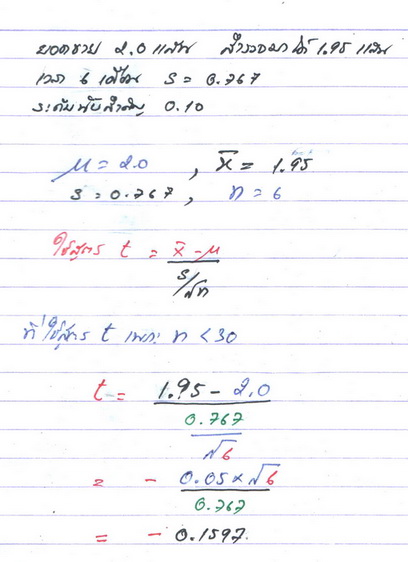 ยอดขาย 2.0 แสน สำรวจมาได้ 1.95 แสน
เวลา 6 เดือน S = 0.767
ระดับนัยสำคัญ 0.10
μ = 2.0 , x̄ = 1.95
S = 0.767 , n = 6
ใช้สูตร t = x̄ - μ
S/√n
ที่ใช้สูตร t เพราะ n < 30
t = 1.95 - 2.0
0.767
√6
= - 0.05 x √6
0.767
= - 0.1597.